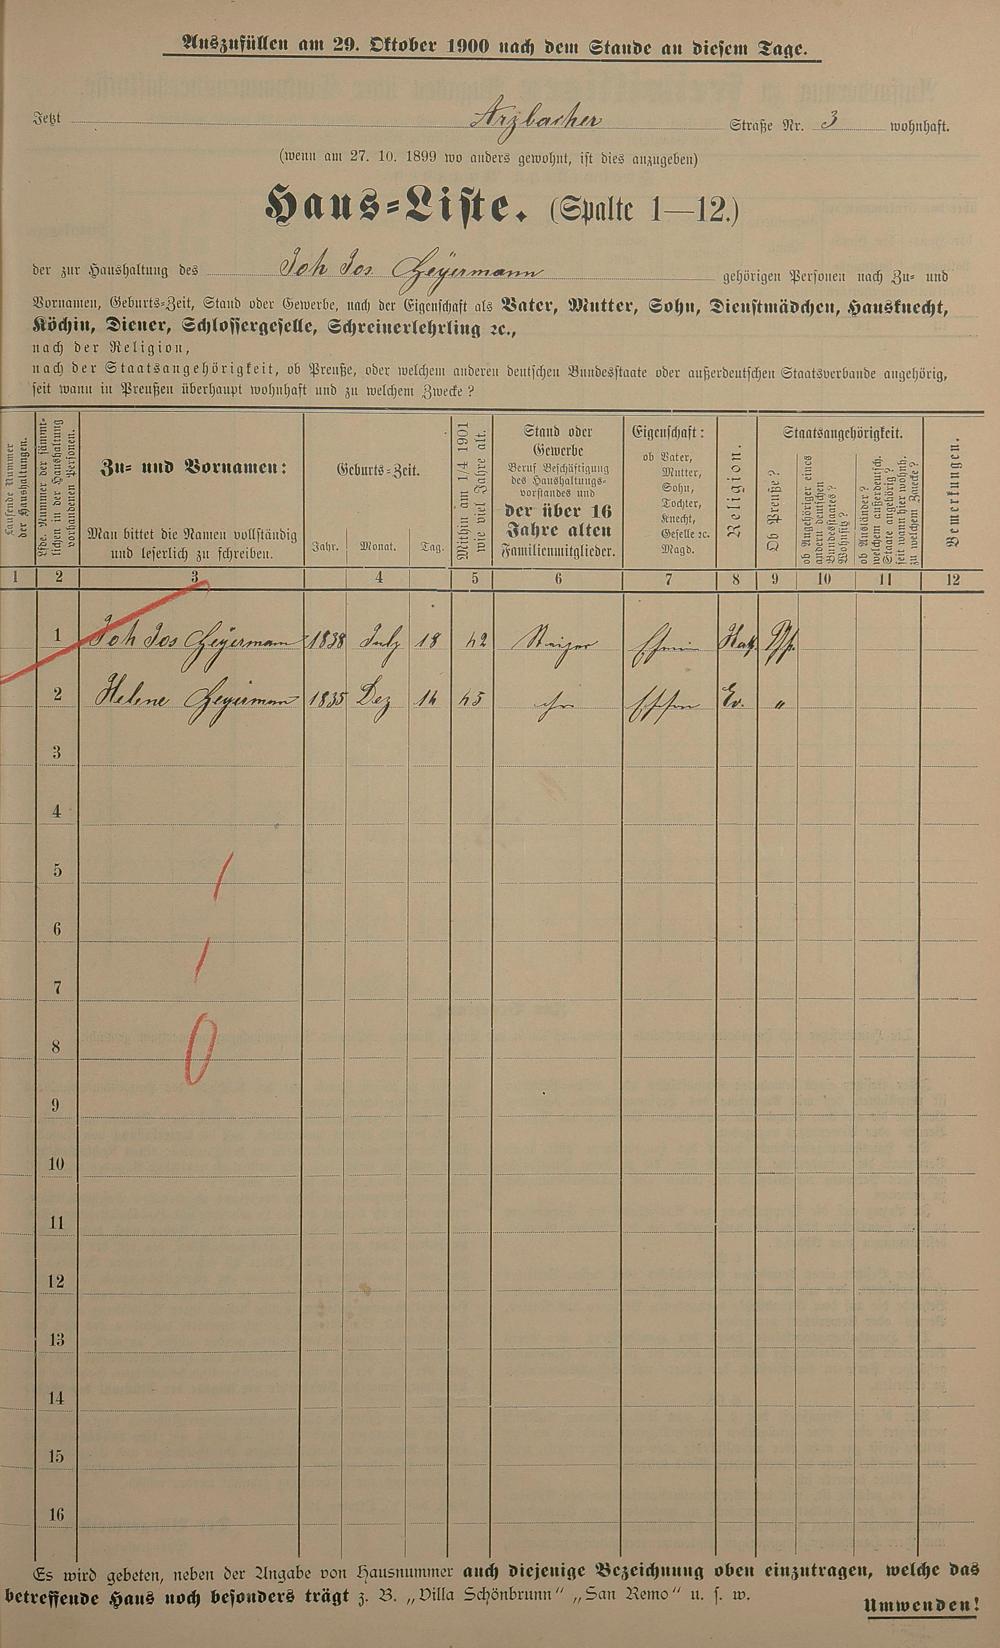 Auszufüllen am 29. Oktober 1900 nach dem Stande an diesem Tage.
Jetzt Arzbacher Straße Nr. 3 wohnhaft.
(wenn am 27. 10. 1899 wo anders gewohnt, ist dies anzugeben)
Haus-Liste. (Spalte 1—12.)
der zur Haushaltung des Joh Jos Geÿermann gehörigen Personen nach Zu- und
Vornamen, Geburts-Zeit, Stand oder Gewerbe, nach der Eigenschaft als Vater, Mutter, Sohn, Dienstmädchen, Hausknecht,
Köchin, Diener, Schlossergeselle, Schreinerlehrling ꝛc.,
nach der Religion,
nach der Staatsangehörigkeit, ob Preuße, oder welchem anderen deutschen Bundesstaate oder außerdeutschen Staatsverbande angehörig,
seit wann in Preußen überhaupt wohnhaft und zu welchem Zwecke?
Laufende Nummer
der Haushaltungen.
Lfde. Nummer der sämmt-
lichen in der Haushaltung
vorhandenen Personen.
Zu- und Vornamen:
Man bittet die Namen vollständig
und leserlich zu schreiben.
Geburts-Zeit.
Jahr. Monat. Tag.
Mithin am 1/4 1901
wie viel Jahre alt.
Stand oder
Gewerbe
Beruf Beschäftigung
des Haushaltungs-
vorstandes und
der über 16
Jahre alten
Familienmitglieder.
Eigenschaft:
ob Vater,
Mutter,
Sohn,
Tochter,
Knecht,
Geselle ꝛc.
Magd.
Religion.
Staatsangehörigkeit.
Ob Preuße?
ob Angehöriger eines
andern deutschen
Bundesstaates?
Wohnsitz?
ob Ausländer?
welchem außerdeutsch.
Staate angehörig?
seit wann hier wohnh.
zu welchem Zwecke?
Bemerkungen.
1 2 3 4 5 6 7 8 9 10 11 12
1 Joh Jos Geÿermann 1838 July 18 42 Kath. Pr.
2 Helene Geyermann 1835 Dez 14 45 Ev. "
3
4
5
6
7
8
9
10
11
12
13
14
15
16
Es wird gebeten, neben der Angabe von Hausnummer auch diejenige Bezeichnung oben einzutragen, welche das
betreffende Haus noch besonders trägt z. B. „Villa Schönbrunn“ „San Remo“ u. s. w.
Umwenden!